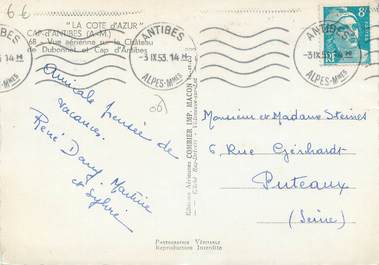 6 6
"LA COTE d'AZUR"
CAP-d'ANTIBES (A.-M.)
68 - Vue aérienne sur le Château
de Dubonnet et Cap d'Antibes
ANTIBES
-3 IX 53. 14 H
ALPES-Mmes
ANTIBES
-3 IX 53
ALPES
8F
Amicale pensée de
vacances.
René Dany Martine
et Sylvie
06
Editions Aériennes COMBIER IMP. MACON
Monsieur et Madame Steines
6 Rue Gerhardt
Puteaux
(Seine)
Photographie Véritable
Reproduction Interdite